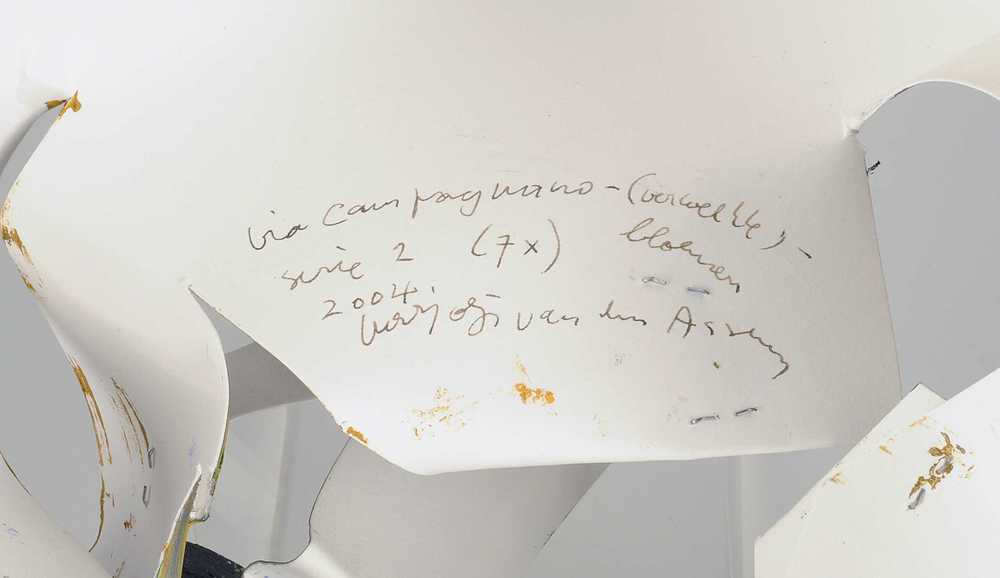 via campagnano - (verwelkte) -
serie 2 (7x) bloemen
2004 van den Assem